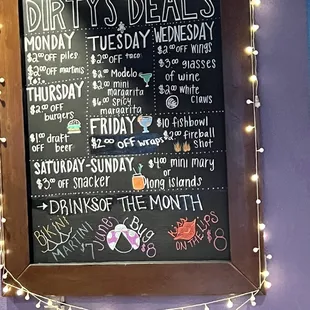 DIRTYS DEALS
MONDAY
$2.00 OFF piles
$2.00 OFF martinis
TUESDAY
$2.00 OFF taco
$2 Modelo
$2 mini
margarita
$6 spicy
margarita
WEDNESDAY
$2.00 OFF wings
$3.00 glasses
of wine
$2.00 white
claws
THURSDAY
$2.00 OFF
burgers
$1 draft
OFF beer
FRIDAY
$2.00 OFF wraps
$10 fishbowl
$2.00 fireball
shot
SATURDAY-SUNDAY
$3.00 OFF snacker
$4.00 mini mary
or
long islands
→DRINKS OF THE MONTH
BIKINI
MARTINI
$7
BUG
$8
ON THE LIPS
$8